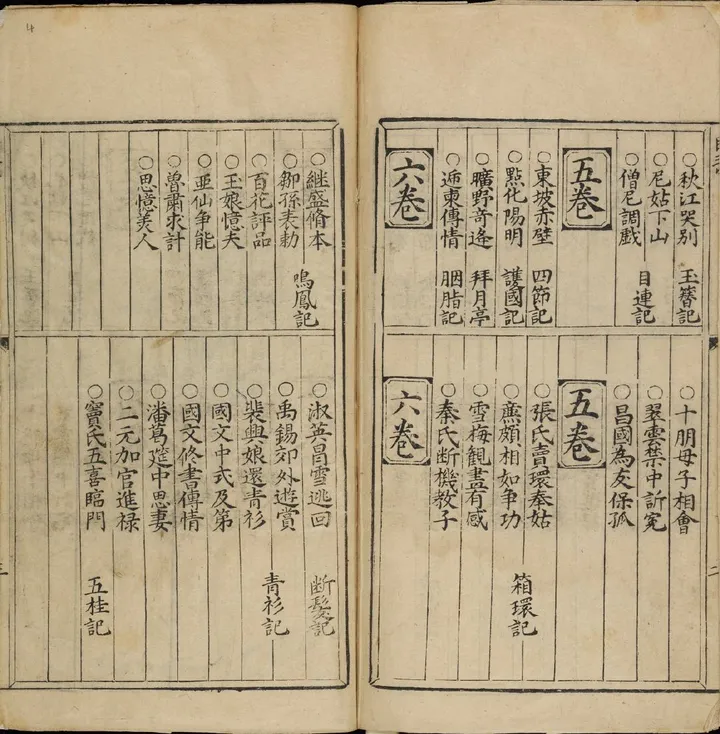 ○秋江哭別 玉簪記
○尼姑下山
○僧尼調戲 目連記
五卷
○東坡赤壁 四節記
○點化陽明 護國記
○曠野奇逢 拜月亭
○遞柬傳情 胭脂記
六卷
○継盛脩本 鳴鳳記
○鄒孫表勅
○百花評品
○玉娘憶夫
○亜仙争能
○魯肅求計
○思憶美人
○十朋母子相會
○翠雲禁中訴冤
○昌國為友保孤
五卷
○張氏賣環奉姑
○廉頗相如争功 箱環記
○雪梅観畫有感
○秦氏断機教子
六卷
○淑英昌雪逃回 断髮記
○禹錫郊外遊賞
○裴興娘還青衫 青衫記
○國文中式及第
○國文修書傳情
○潘葛筵中思妻
○二元加官進禄
○竇氏五喜臨門 五桂記
二